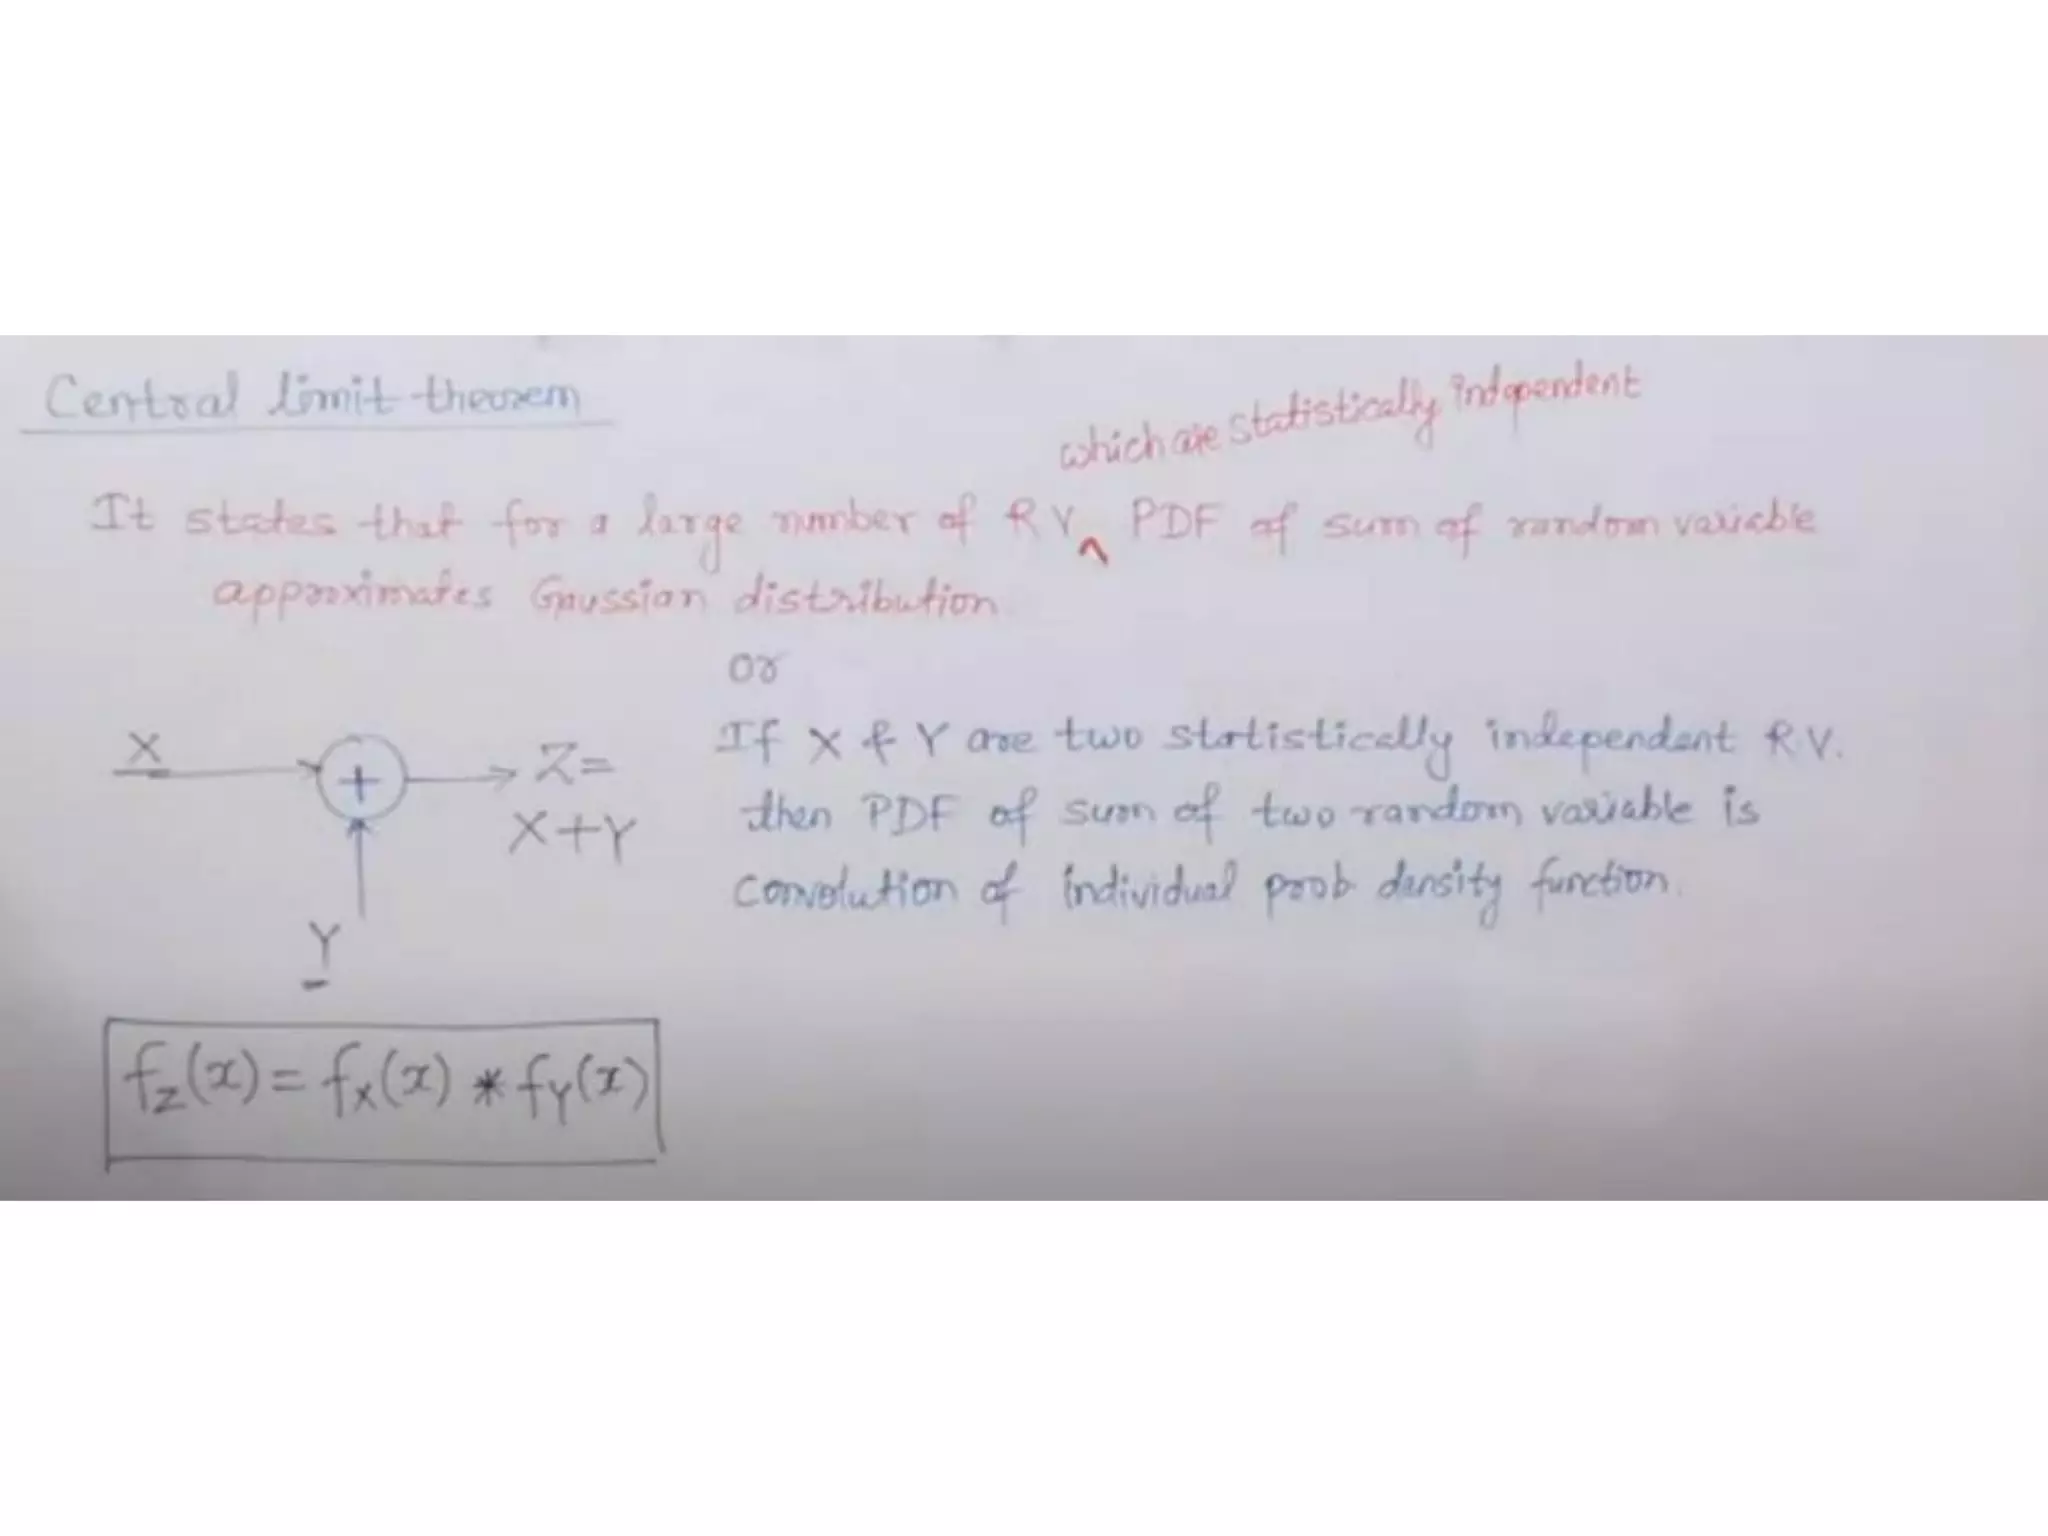 Central limit theorem
which are statistically independent
It states that for a large number of RV^ PDF of sum of random variable
approximates Gaussian distribution
or
If X & Y are two statistically independent RV.
then PDF of sum of two random variable is
convolution of individual prob density function.
X
+
Z=
X+Y
Y
fz(x) = fx(x) * fY(x)